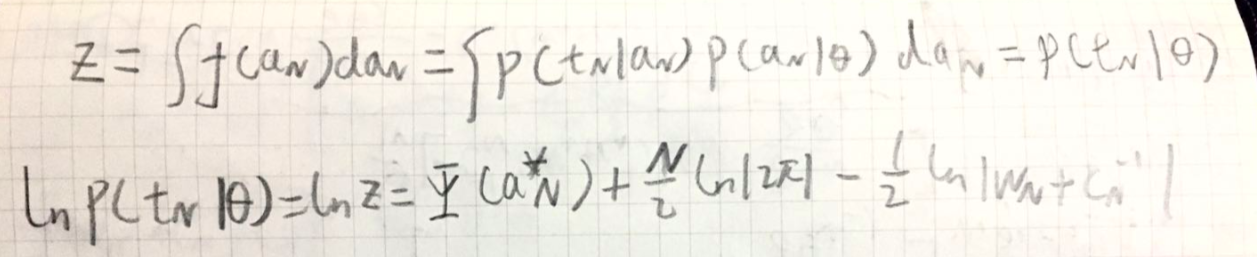 Z = ∫f(a_N)da_N = ∫p(t_N|a_N) p(a_N|θ) da_N = p(t_N|θ)
ln p(t_N|θ) = ln Z = Ψ(a*_N) + N/2 ln|2π| - 1/2 ln|W_N + C_N^-1|